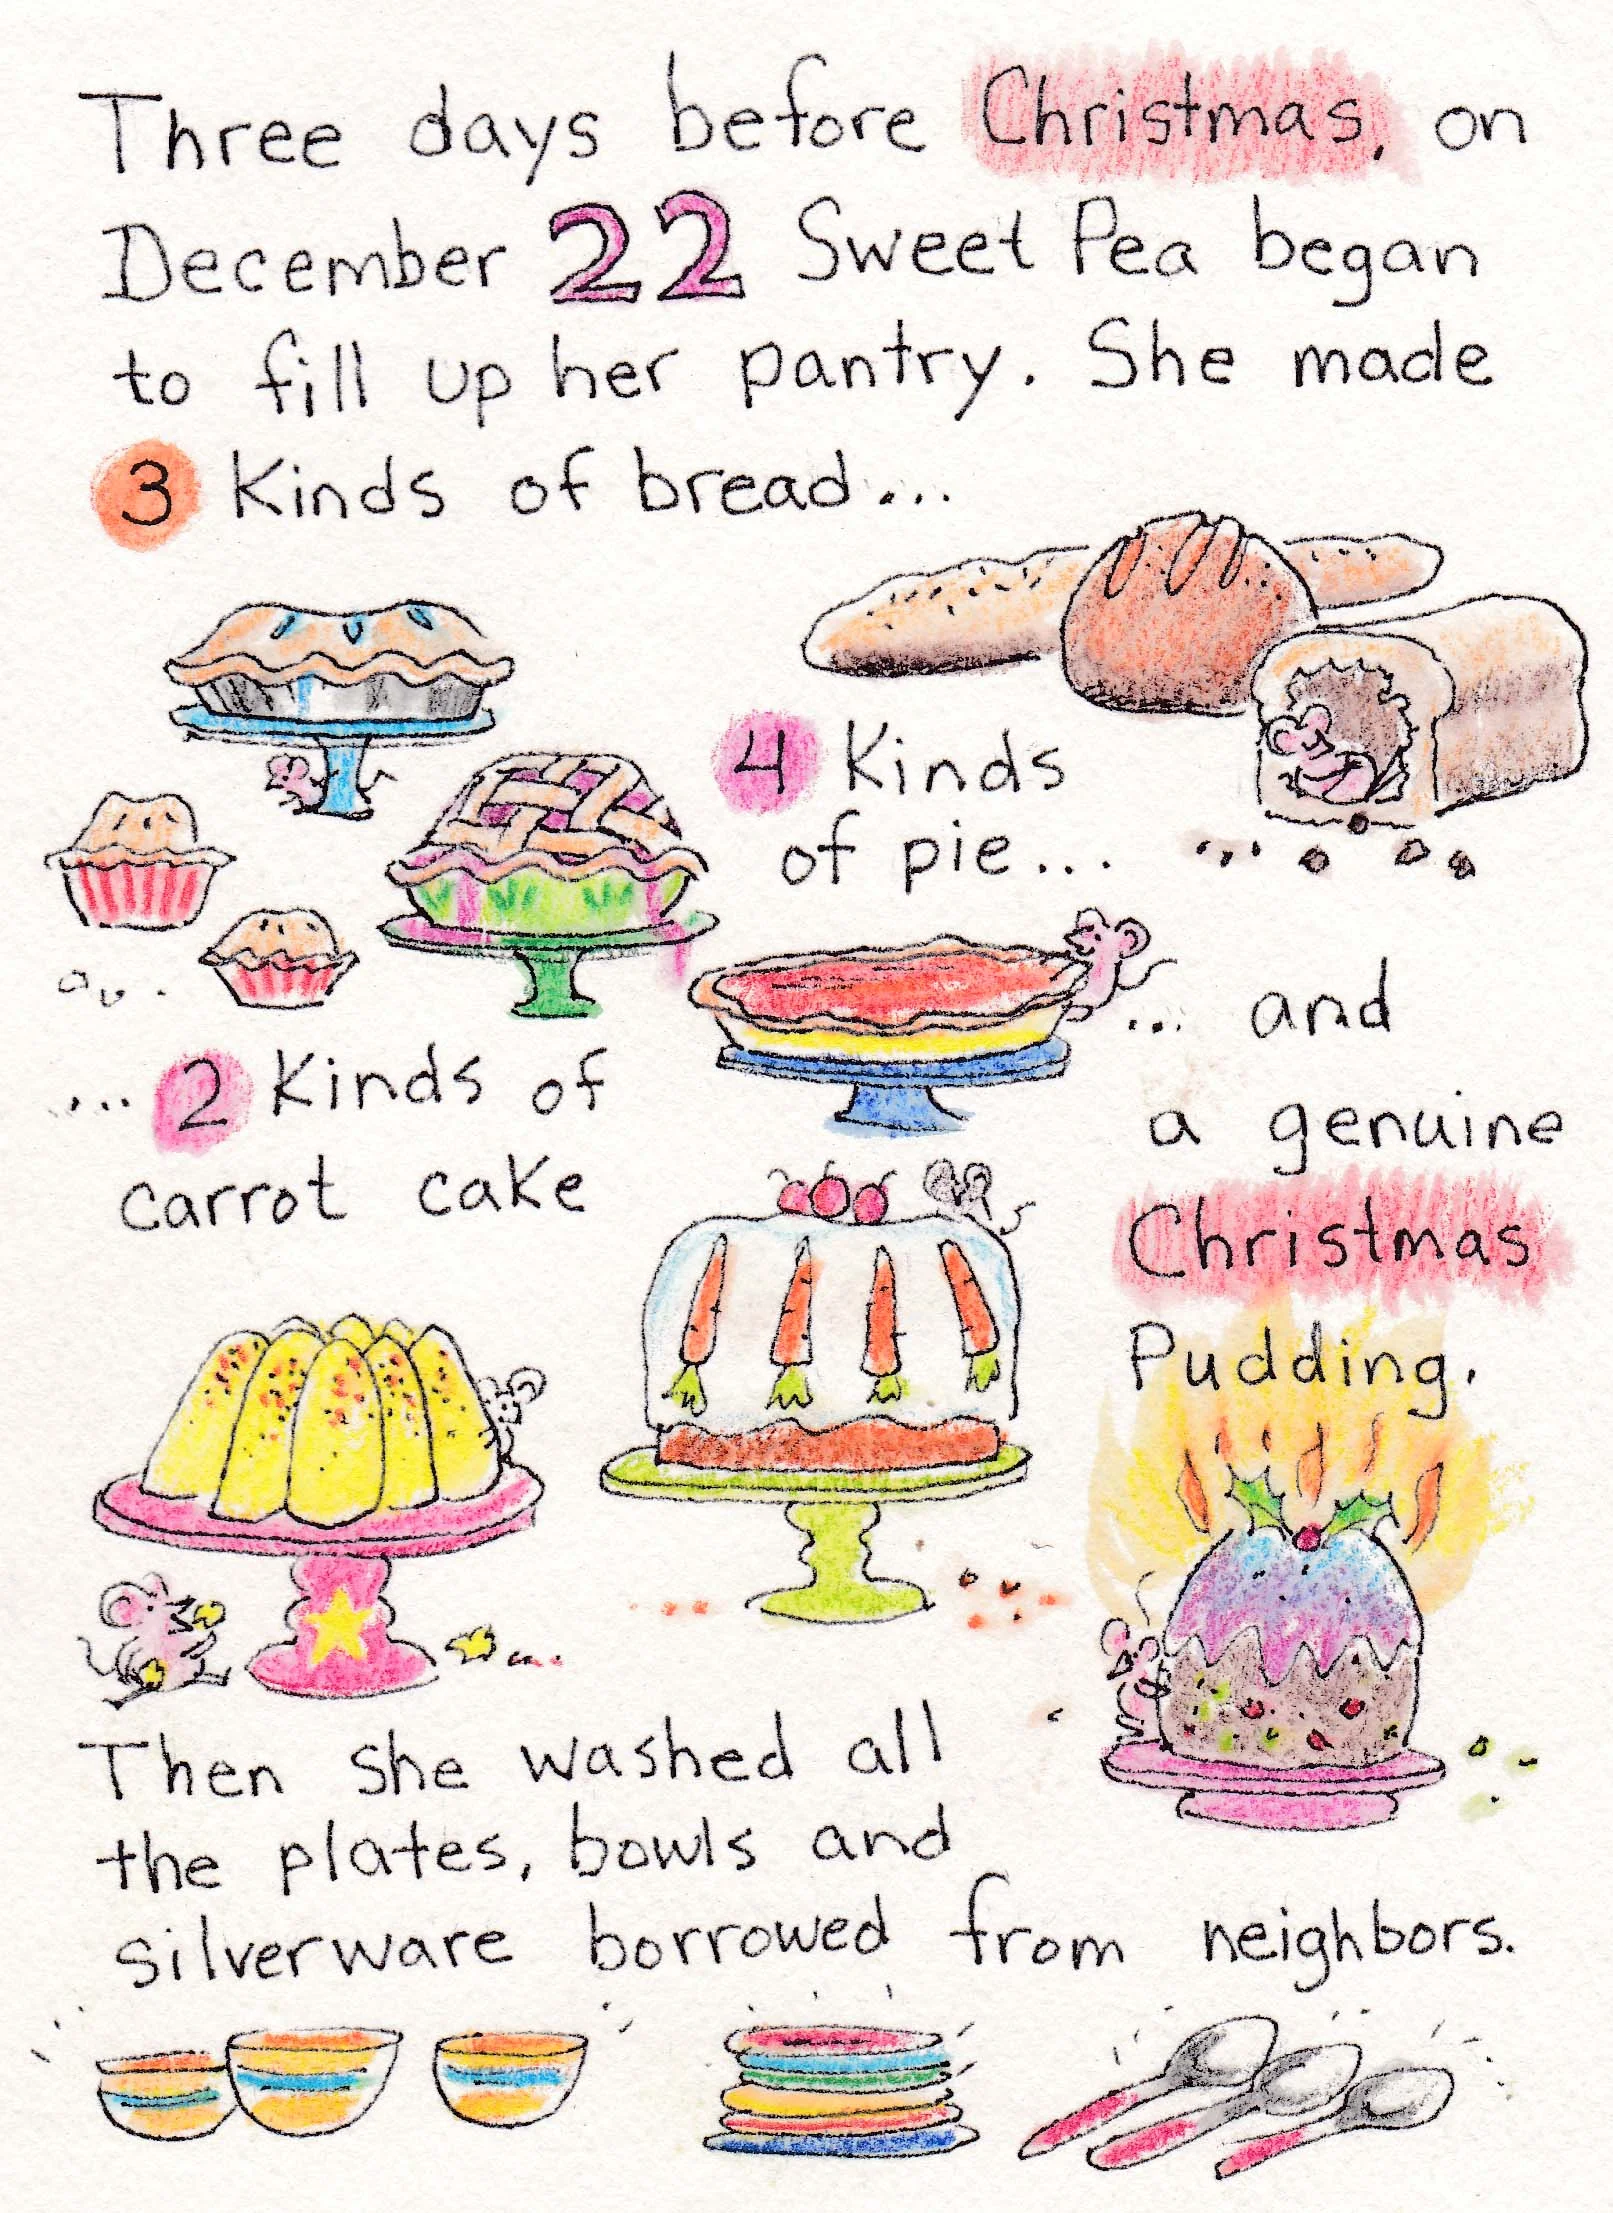 Three days before Christmas, on
December 22 Sweet Pea began
to fill up her pantry. She made
3 Kinds of bread...
4 Kinds
of pie...
... 2 Kinds of
carrot cake
... and
a genuine
Christmas
Pudding.
Then she washed all
the plates, bowls and
silverware borrowed from neighbors.